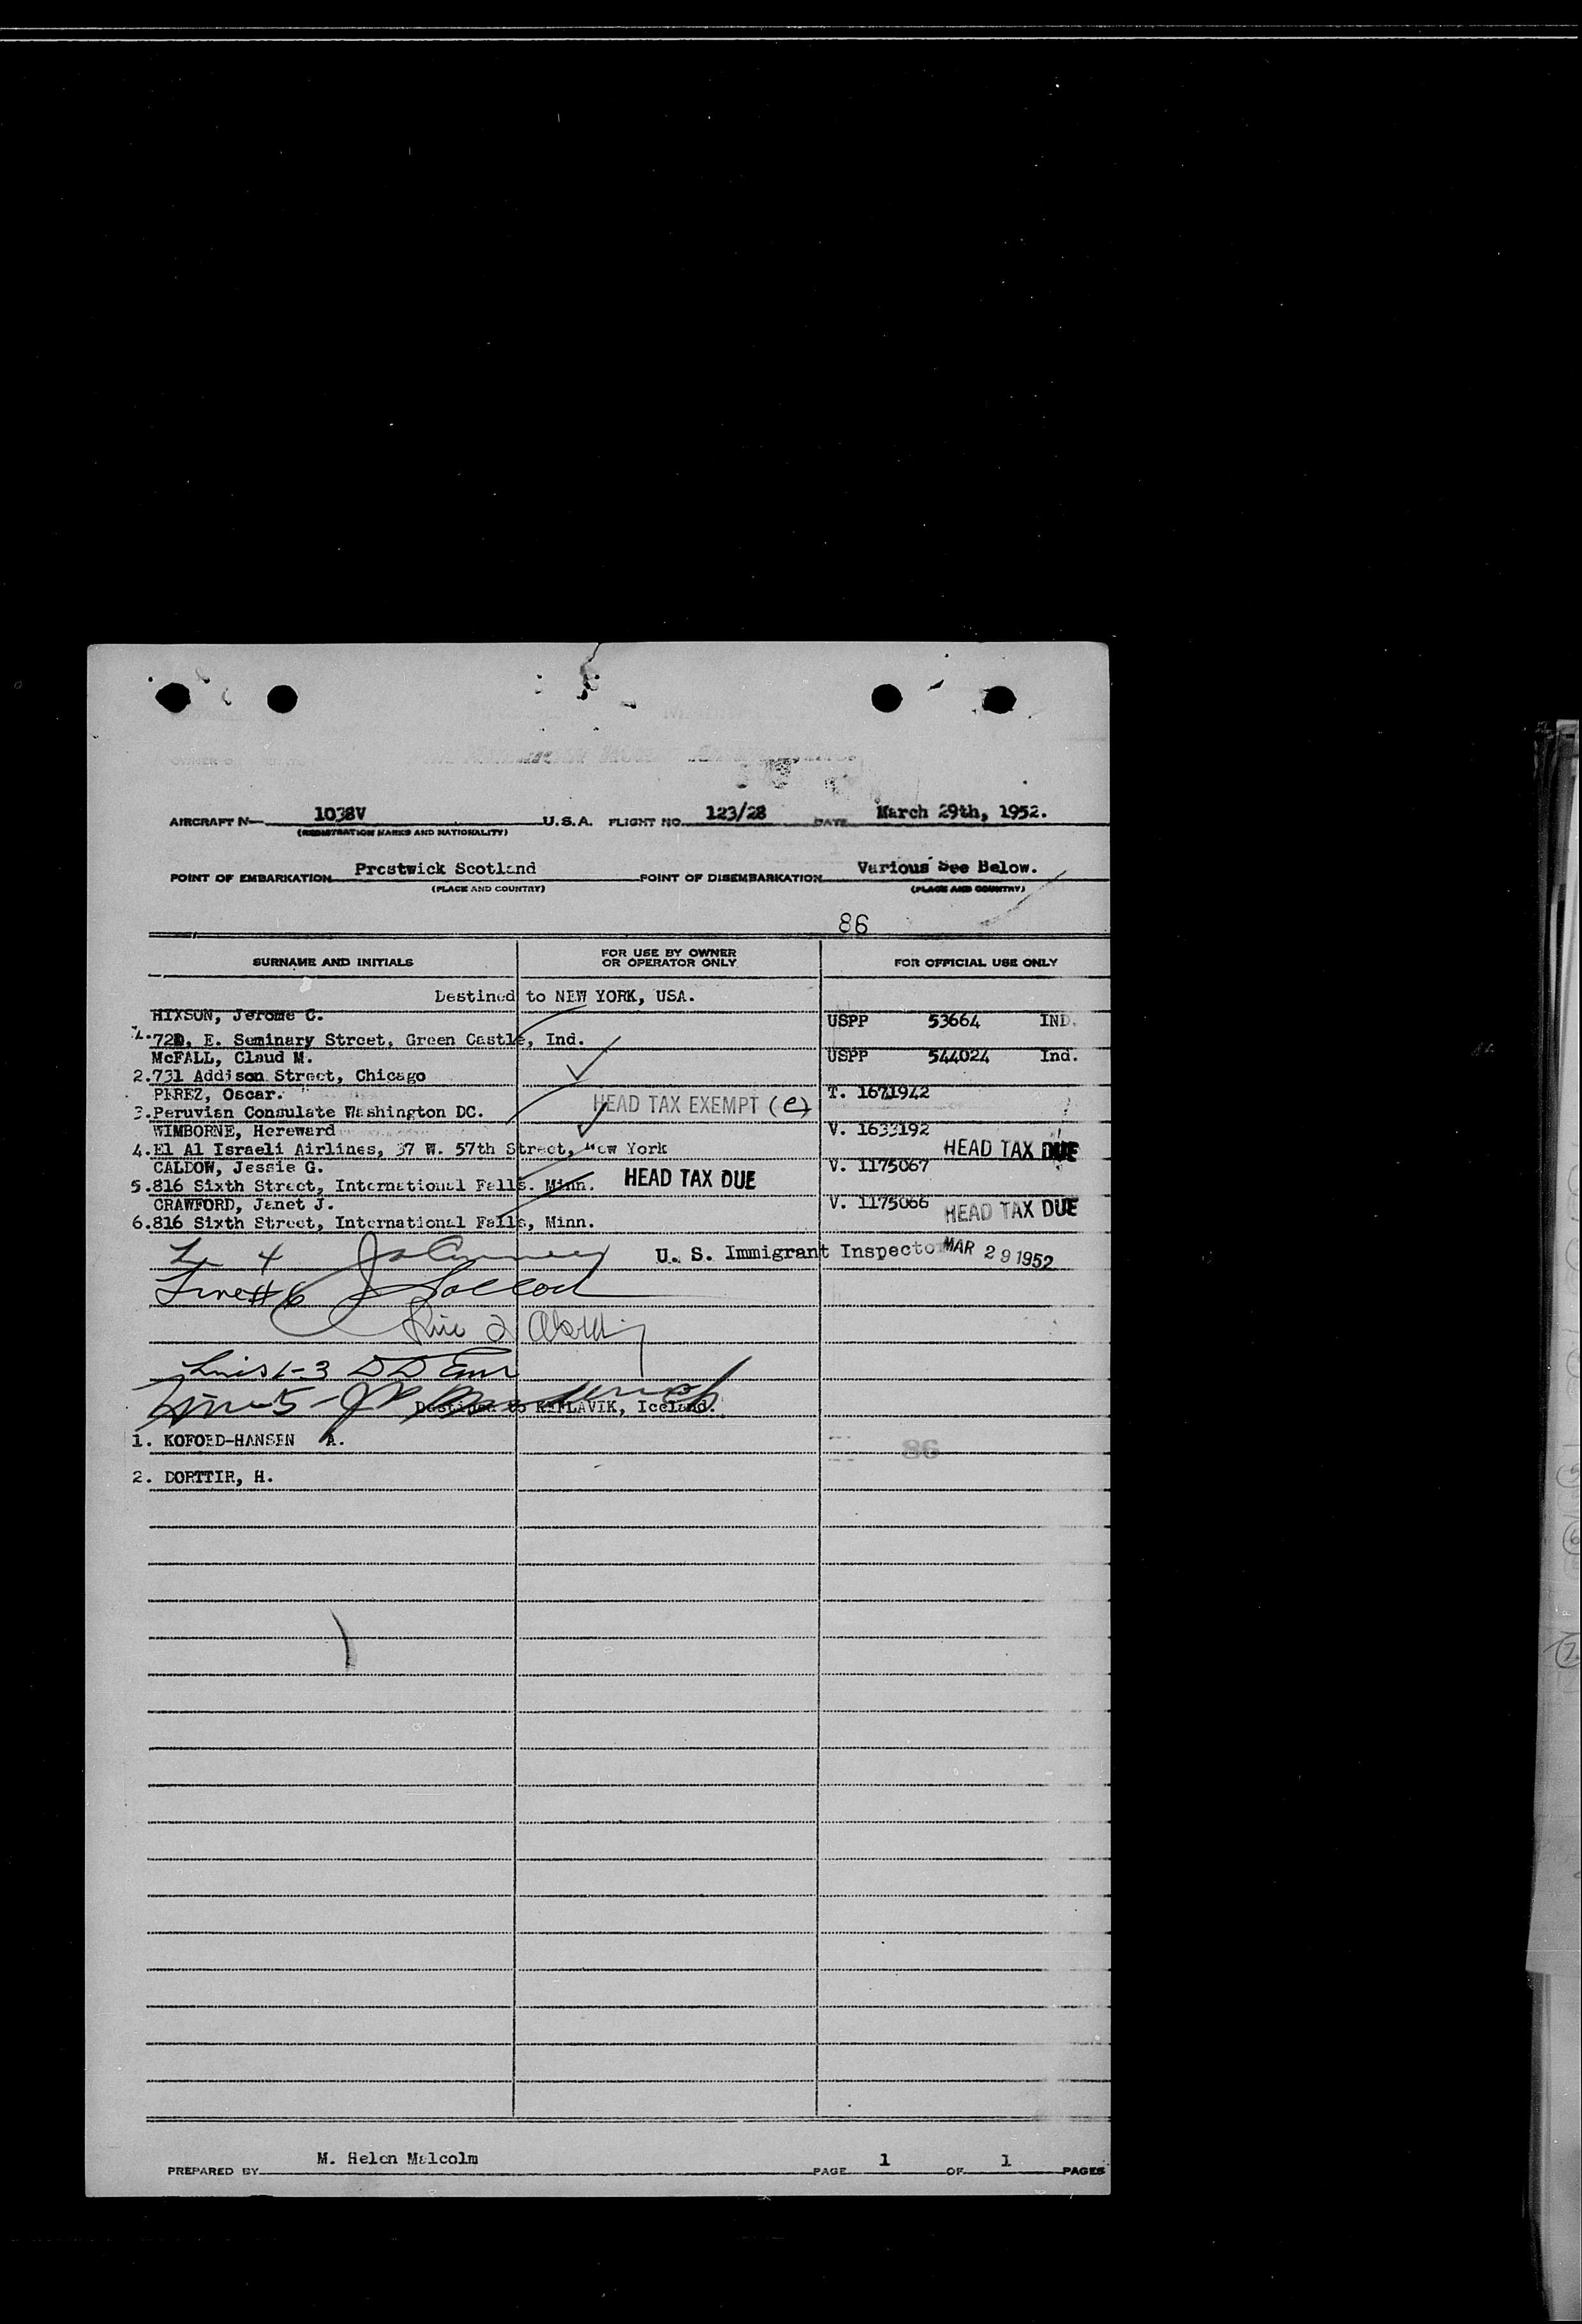 AIRCRAFT N— 1038V U.S.A. FLIGHT NO. 123/28 DATE March 29th, 1952.
(REGISTRATION MARKS AND NATIONALITY)
POINT OF EMBARKATION Prestwick Scotland POINT OF DISEMBARKATION Various See Below.
(PLACE AND COUNTRY) (PLACE AND COUNTRY)
86
SURNAME AND INITIALS FOR USE BY OWNER OR OPERATOR ONLY FOR OFFICIAL USE ONLY
Destined to NEW YORK, USA.
HIXSON, Jerome C. USPP 53664 IND.
1. E. Seminary Street, Green Castle, Ind.
McFALL, Claud M. USPP 544024 Ind.
2.731 Addison Street, Chicago
PEREZ, Oscar. T. 1671942
3.Peruvian Consulate Washington DC. HEAD TAX EXEMPT (e)
WIMBORNE, Hereward V. 1633192
4.El Al Israeli Airlines, 37 W. 57th Street, New York HEAD TAX DUE
CALDOW, Jessie G. V. 1175067
5.816 Sixth Street, International Falls. Minn. HEAD TAX DUE
CRAWFORD, Janet J. V. 1175066 HEAD TAX DUE
6.816 Sixth Street, International Falls, Minn.
L 4 U. S. Immigrant Inspector MAR 29 1952
Line # 6
Line 2
Lines 1-3
Line 5
Destined to KEFLAVIK, Iceland.
1. KOFOED-HANSEN A. 86
2. DORTTIR, H.
PREPARED BY M. Helen Malcolm PAGE 1 OF 1 PAGES